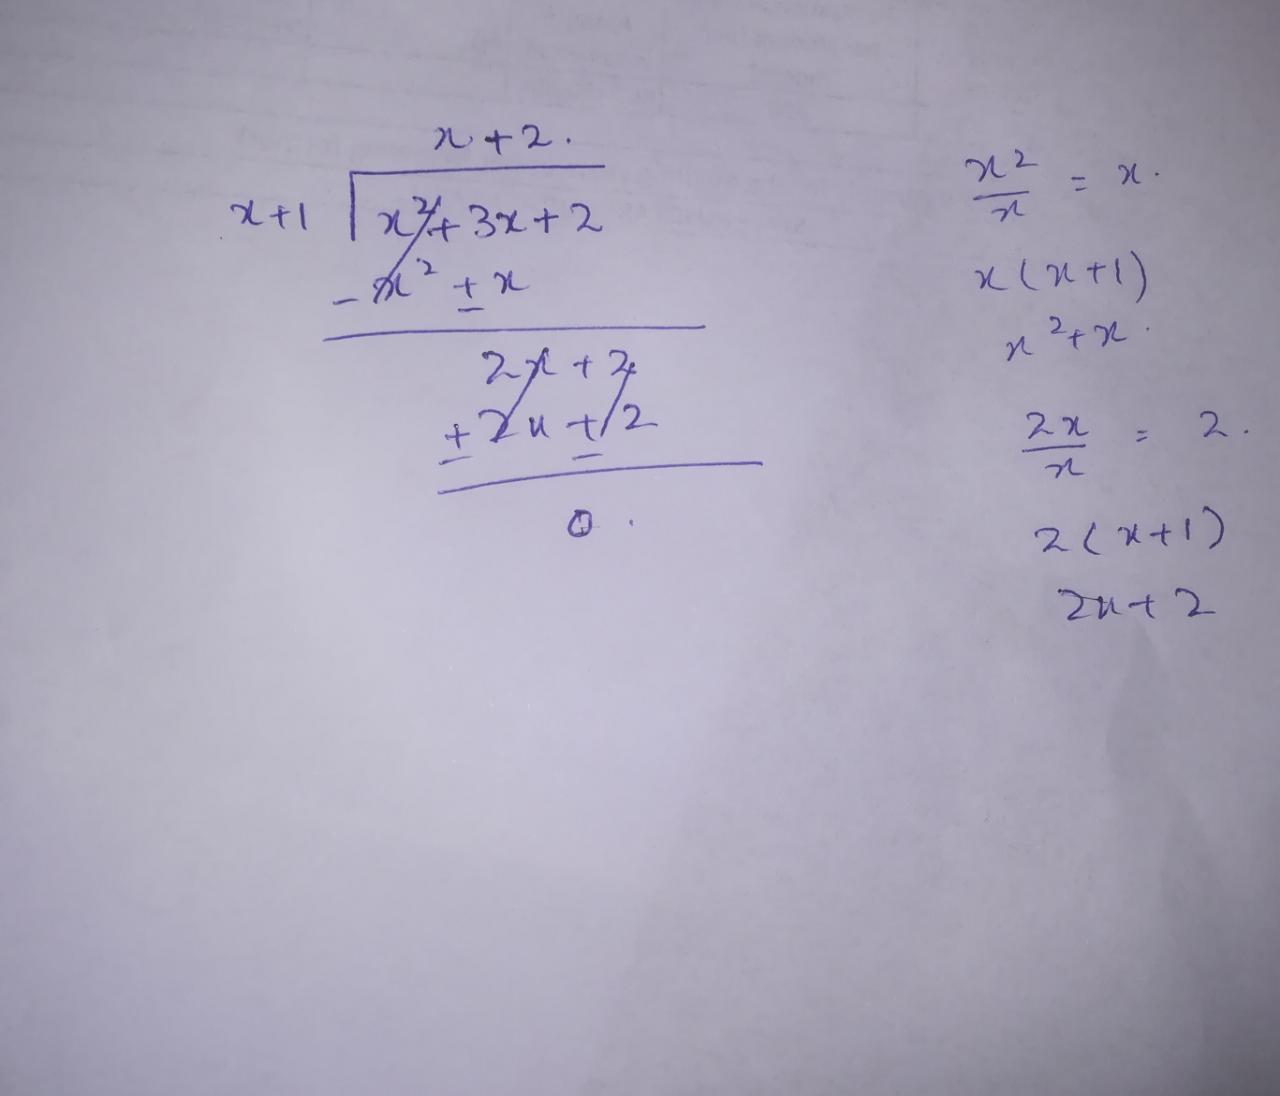 x + 2.
x+1 | x² + 3x + 2
- x² + x
2x + 2
+ 2x + 2
0.
x²/x = x.
x(x+1)
x² + x.
2x/x = 2.
2(x+1)
2x + 2